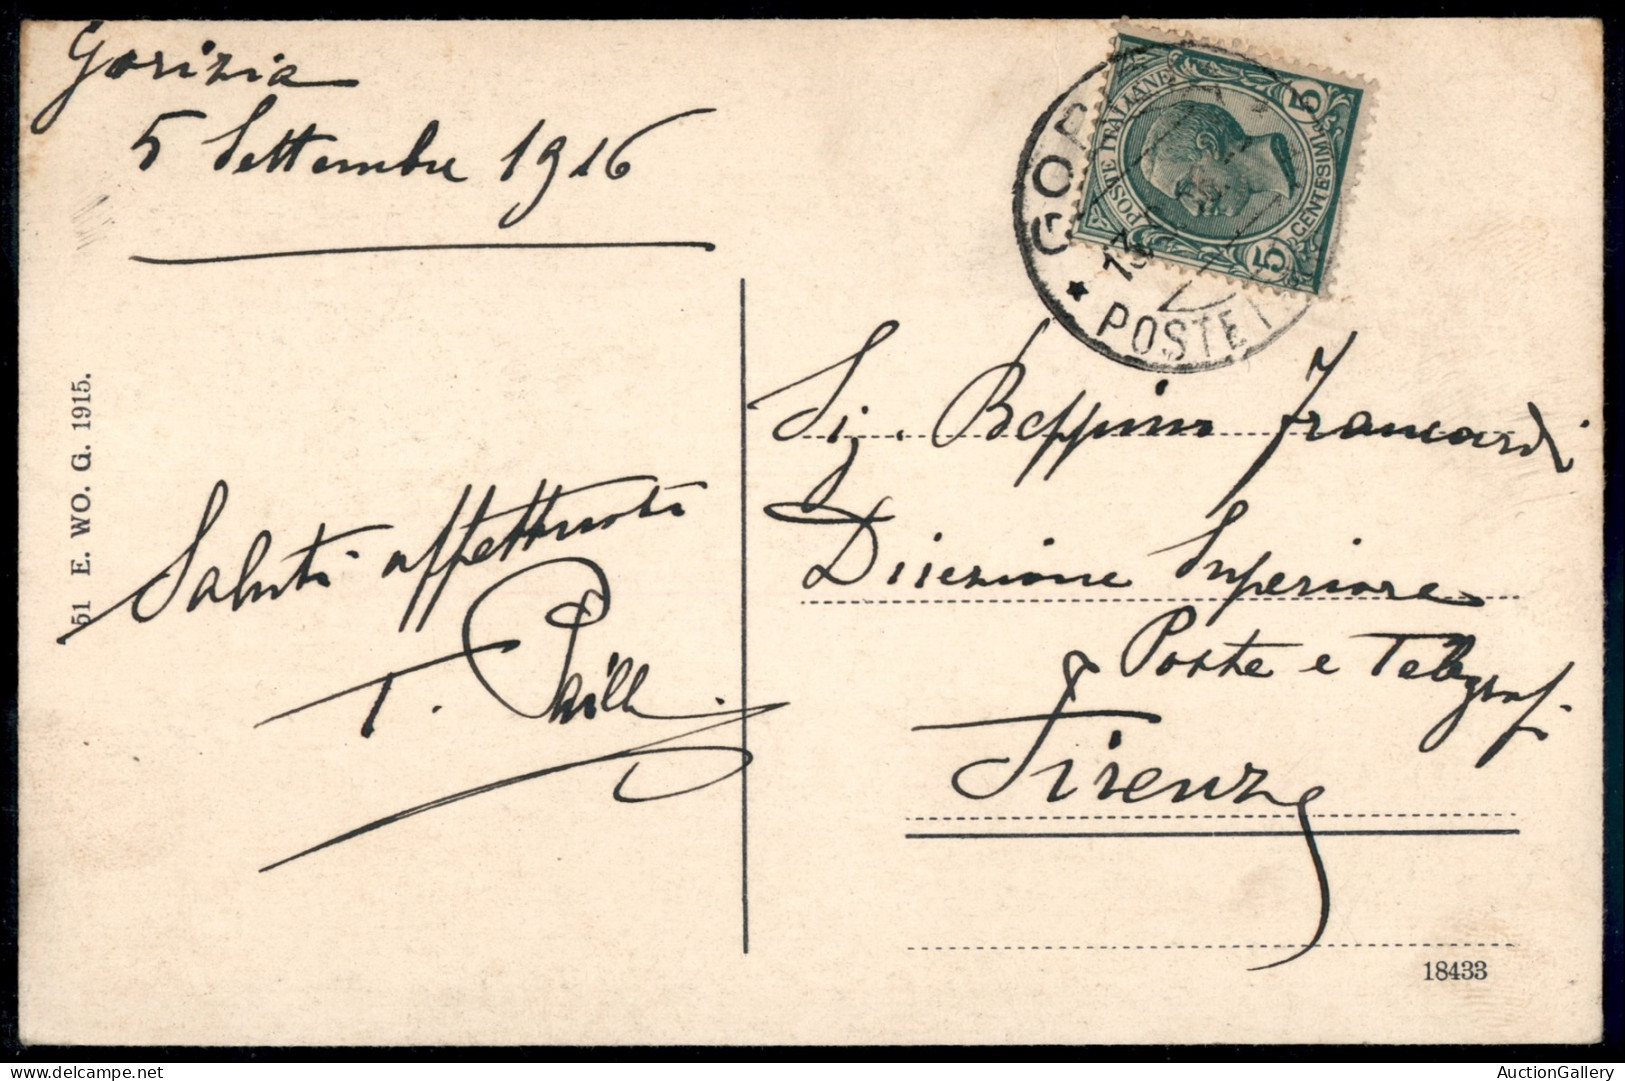 Gorizia
5 Settembre 1916
POSTE ITALIANE
5 CENTESIMI 5
GOR
13
* POSTE I
51 E. WO. G. 1915.
Saluti affettuosi
T.
Sig. Beppino Francardi
Direzione Superiore
Poste e Telegrafi
Firenze
18433
delcampe.net
AuctionGallery